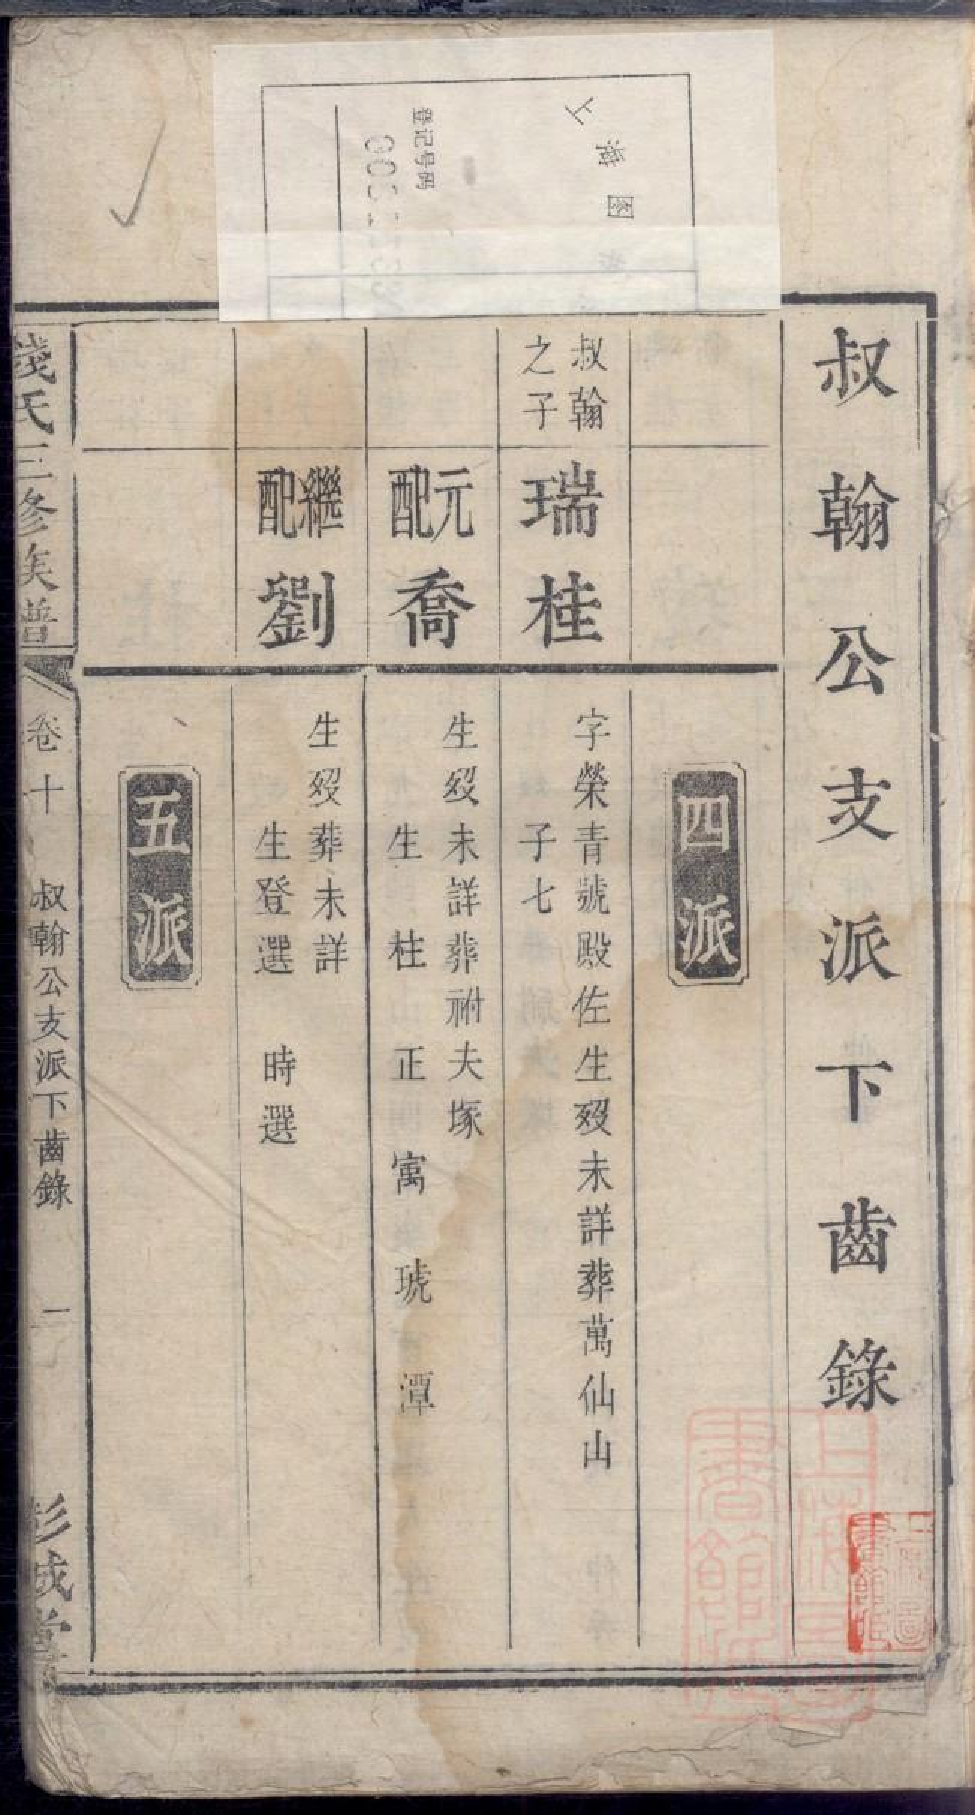 上海图
登记号码
叔翰公支派下齒錄
四派
叔翰之子
瑞桂
字榮青號殿佐生歿未詳葬萬仙山
子七
元配喬
生歿未詳葬祔夫塚
生 柱 正 寓 琥 潭
繼配劉
生歿葬未詳
生登選 時選
五派
錢氏三修族譜
卷十
叔翰公支派下齒錄
一
彭城堂